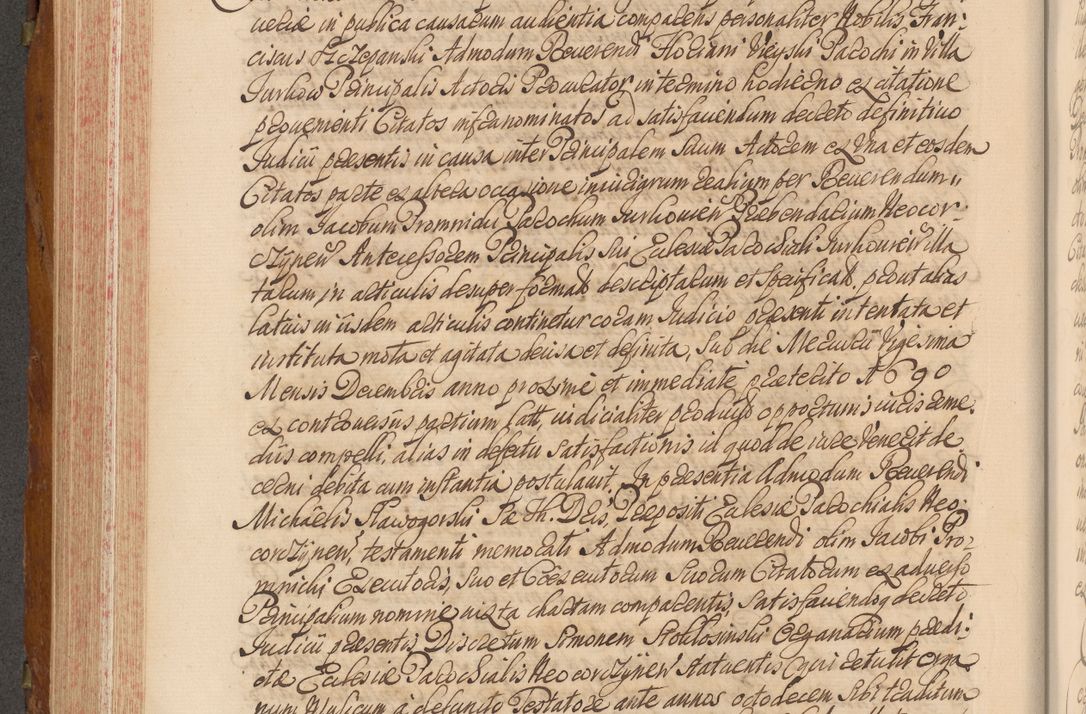 in publica causarum audientia comparens personaliter Nobilis Fran:
ciscus Szczepanski Admodum Reverendi Floriani Parochi in Villa
Jurkow Principalis Actoris Procurator in termino hodierno ex citatione
peremienti Citatos infranominatos ad satisfaciendum decreto definitivo
Judicii praesentis in causa inter Principalem Suum Actorem ex Una et eosdem
Citatos parte ex altera occasione injuriarum realium per Reverendum
olim Jacobum Promnicki Parochum Jurkovien Praebendarium Neocor:
czynen Antecessorem Principalis Sui Ecclesiae Parochiali Jurkovien illa
tarum in articulis desuper formatis descriptarum et specificatis, prout alias
latius in iisdem articulis continetur coram Judicio praesenti intentata et
instituta mota et agitata decisa et definita, Sub die Mercurii Vigesima
Mensis Decembris anno proxime et immediate praeterito 1690
ex controversiis partium latt, judicialiter opportunis iuris reme:
diis compelli, alias in defectu satisfactionis id quod de iure venerit de
cerni debita cum instantia postulavit. In praesentia Admodum Reverendi
Michaelis Slawogorski Sae Th. Dris, Praepositi Ecclesiae Parochialis Neo
corczynen, testamenti memorati Admodum Reverendi olim Jacobi Pro:
mnicki Executoris, Suo et Coexecutorum Suorum Citatorum ex adverso
Principalium nomine iuxta chartam comparentis, satisfaciendoq decreto
Judicii praesentis Discretum Simonem Organarium praedi:
ctae Ecclesiae Parochialis Neocorczynen statuentis, qui retulit orga
num a defuncto Testatore ante annos octodecem sibi traditum